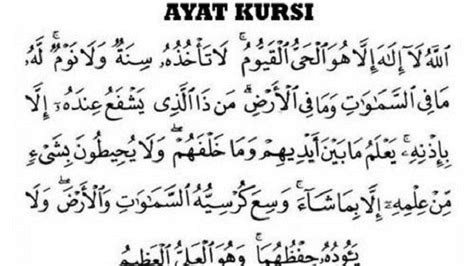 AYAT KURSI
ٱللَّهُ لَآ إِلَٰهَ إِلَّا هُوَ ٱلْحَىُّ ٱلْقَيُّومُ ۚ لَا تَأْخُذُهُۥ سِنَةٌ وَلَا نَوْمٌ ۚ لَّهُۥ
مَا فِى ٱلسَّمَٰوَٰتِ وَمَا فِى ٱلْأَرْضِ ۗ مَن ذَا ٱلَّذِى يَشْفَعُ عِندَهُۥٓ إِلَّا
بِإِذْنِهِۦ ۚ يَعْلَمُ مَا بَيْنَ أَيْدِيهِمْ وَمَا خَلْفَهُمْ ۖ وَلَا يُحِيطُونَ بِشَىْءٍ
مِّنْ عِلْمِهِۦٓ إِلَّا بِمَا شَآءَ ۚ وَسِعَ كُرْسِيُّهُ ٱلسَّمَٰوَٰتِ وَٱلْأَرْضَ ۖ وَلَا
يَـُٔودُهُۥ حِفْظُهُمَا ۚ وَهُوَ ٱلْعَلِىُّ ٱلْعَظِيمُ